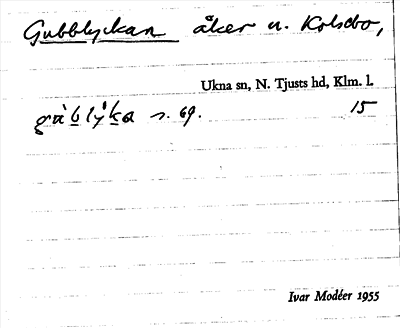 Gubblyckan åker u. Kolsebo,
Ukna sn, N. Tjusts hd, Klm. l.
s. 69. 15
Ivar Modéer 1955